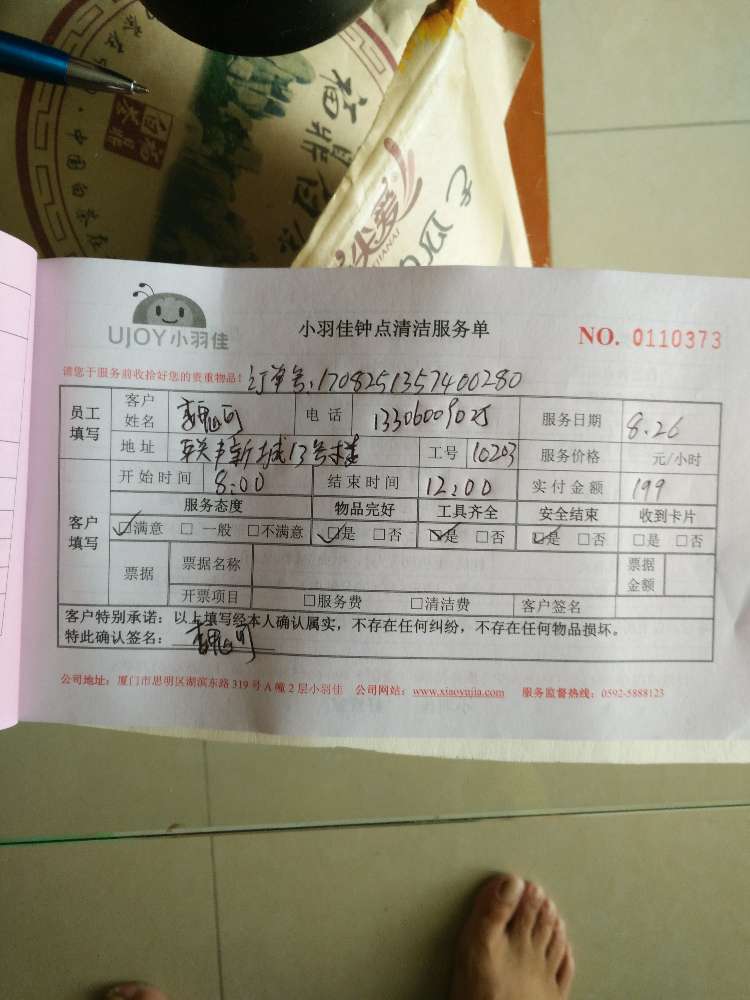 中国白茶
福鼎白茶
尖爱
JIANAI
UJOY小羽佳
小羽佳钟点清洁服务单
NO. 0110373
请您于服务前收拾好您的贵重物品!
订单号:1708251357400280
员工填写 客户姓名 电话 13306009025 服务日期 8.26
地址 联丰新城13号楼 工号 10203 服务价格 元/小时
客户填写 开始时间 8:00 结束时间 12:00 实付金额 199
服务态度 物品完好 工具齐全 安全结束 收到卡片
☑满意 □一般 □不满意 ☑是 □否 ☑是 □否 ☑是 □否 □是 □否
票据 票据名称 票据金额
开票项目 □服务费 □清洁费 客户签名
客户特别承诺:以上填写经本人确认属实,不存在任何纠纷,不存在任何物品损坏。
特此确认签名:
公司地址:厦门市思明区湖滨东路319号A幢2层小羽佳 公司网站:www.xiaoyujia.com 服务监督热线:0592-5888123